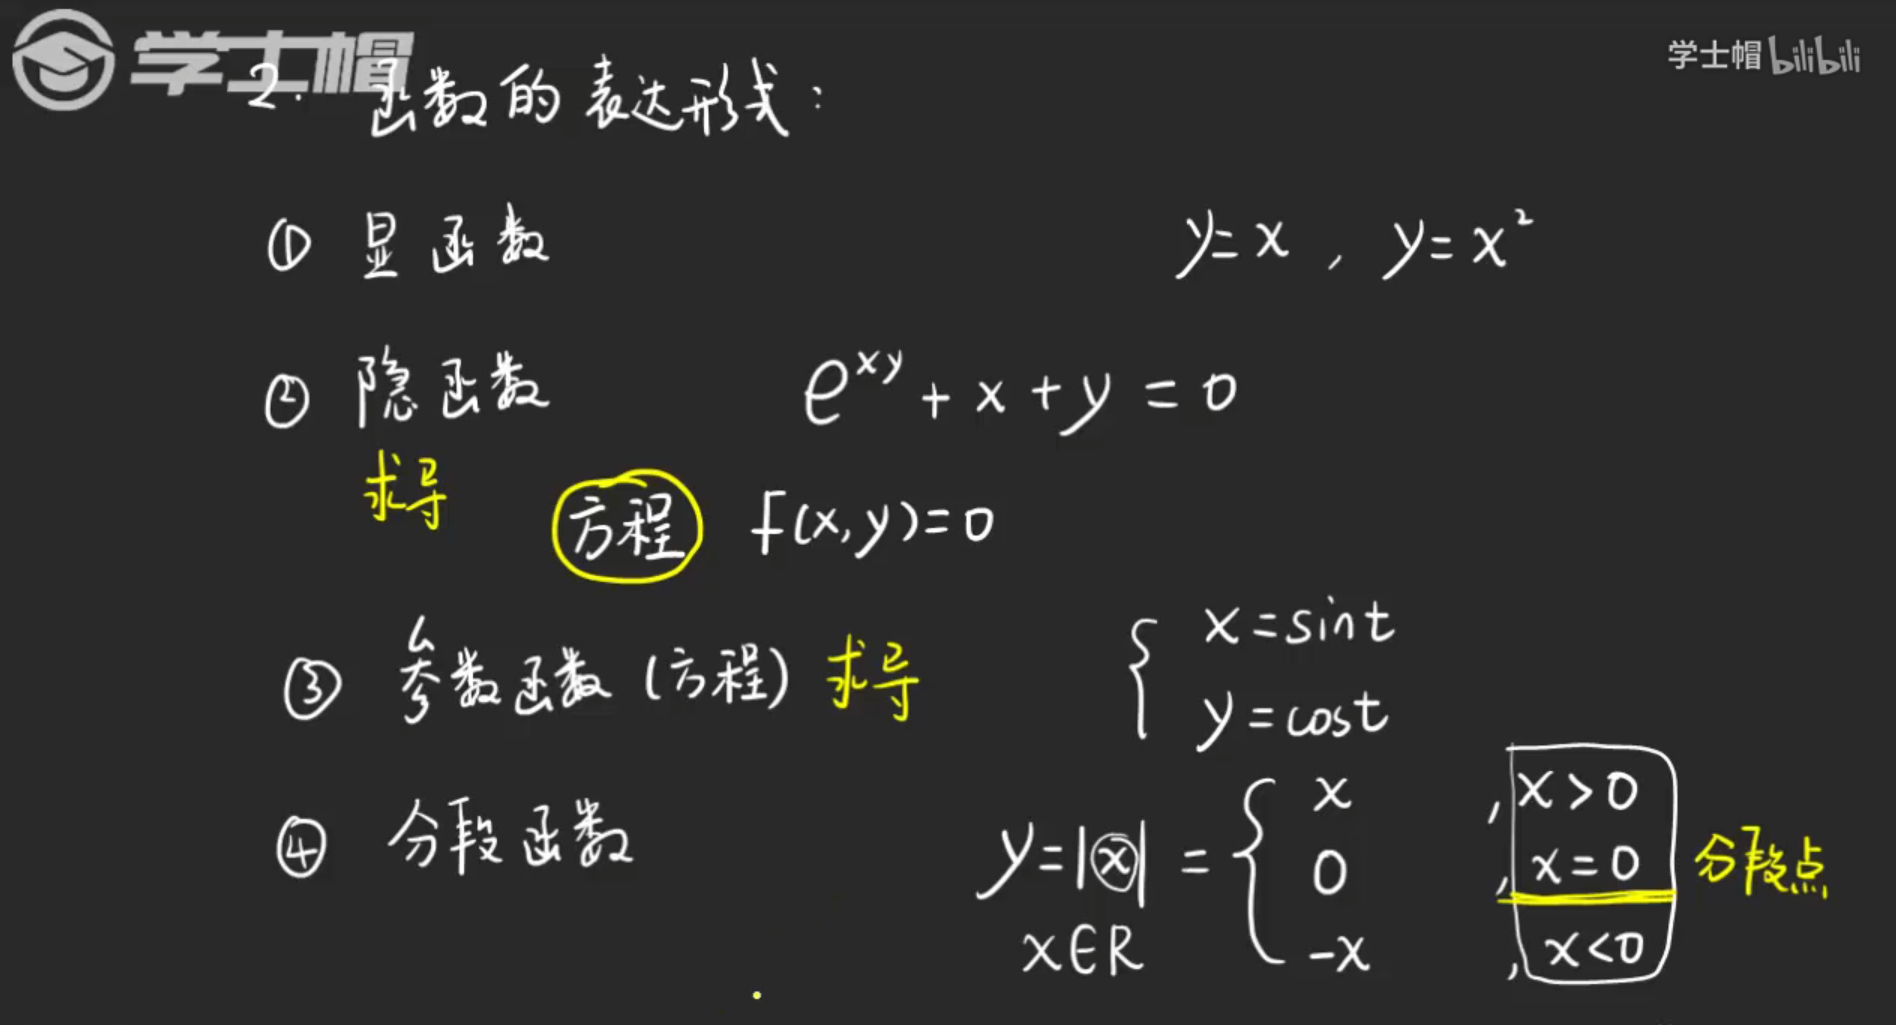 学士帽
学士帽 bilibili
2. 函数的表达形式:
① 显函数 y=x , y=x²
② 隐函数 e^{xy} + x + y = 0
求导
方程 f(x,y)=0
③ 参数函数(方程) 求导 { x=sint
y=cost
④ 分段函数 y=|x| = { x , x>0
0 , x=0 分段点
x∈R -x , x<0